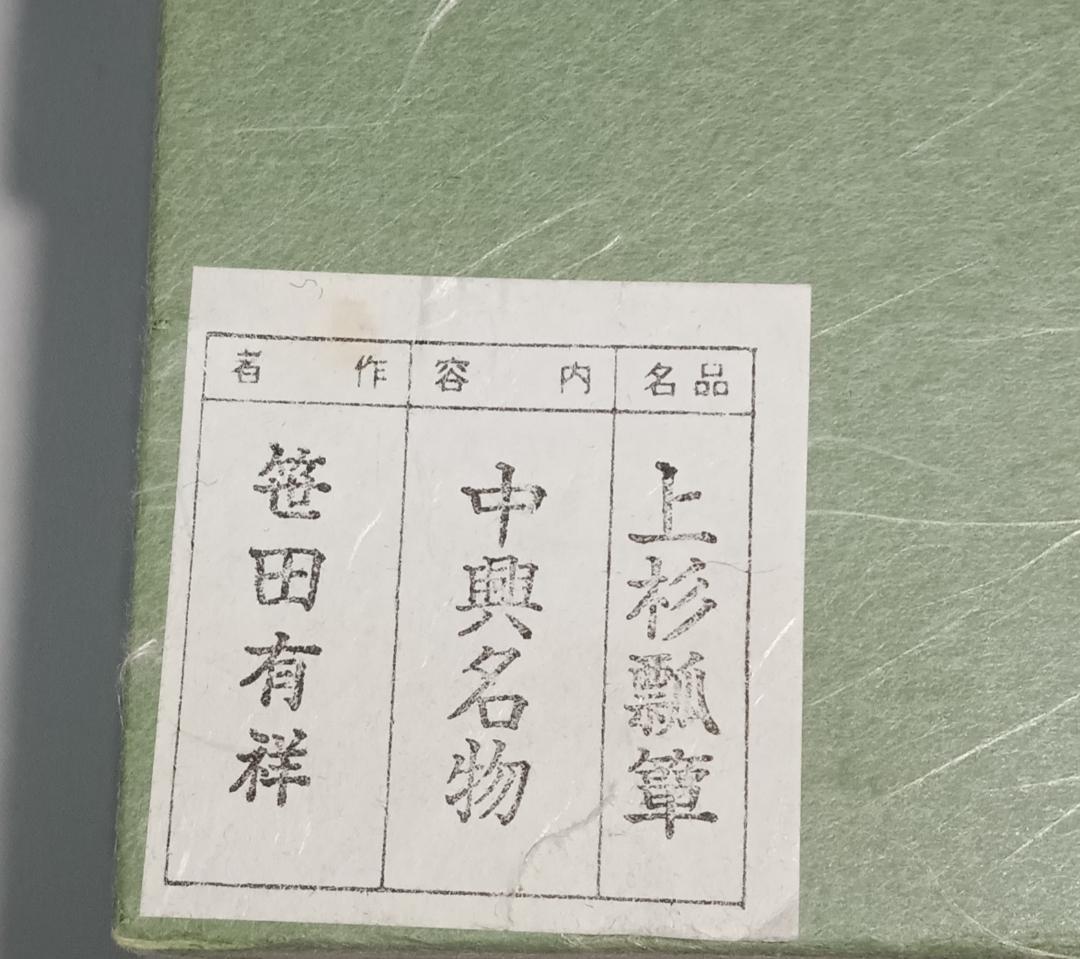 品名
上杉瓢箪
内容
中興名物
作者
笹田有祥